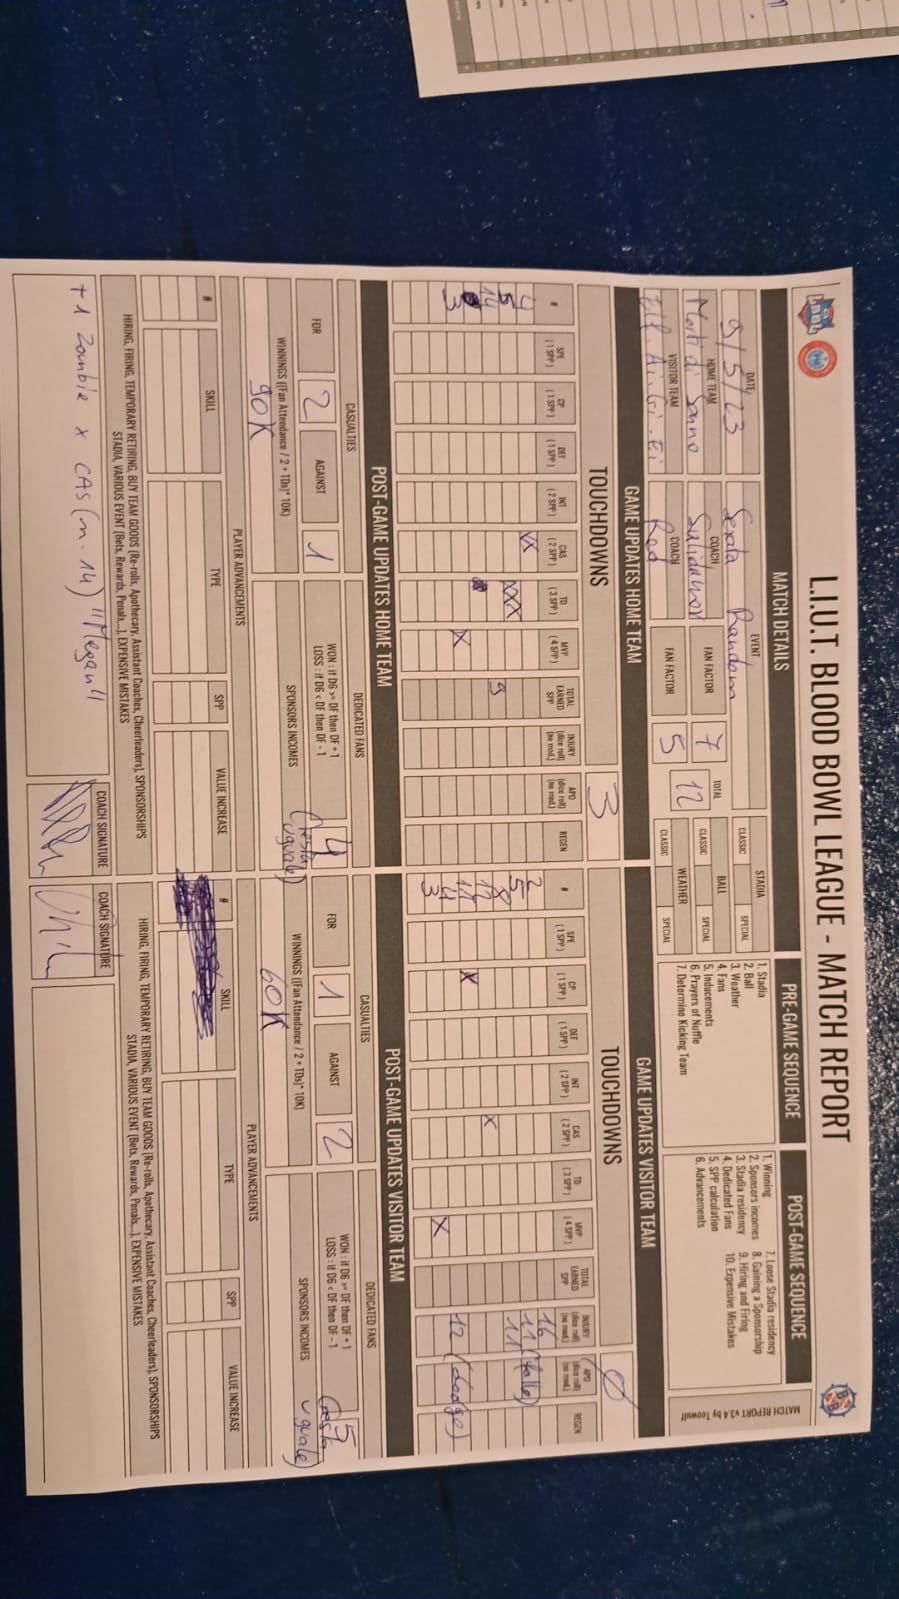 L.I.U.T. BLOOD BOWL LEAGUE - MATCH REPORT
MATCH DETAILS
DATE
9/5/23
EVENT
Serata Random
STADIA
CLASSIC
SPECIAL
HOME TEAM
Morti di Sonno
COACH
FAN FACTOR
7
TOTAL
12
BALL
CLASSIC
SPECIAL
VISITOR TEAM
COACH
Red
FAN FACTOR
5
WEATHER
CLASSIC
SPECIAL
PRE-GAME SEQUENCE
1. Stadia
2. Ball
3. Weather
4. Fans
5. Inducements
6. Prayers of Nuffle
7. Determine Kicking Team
POST-GAME SEQUENCE
1. Winning
2. Sponsors incomes
3. Stadia residency
4. Dedicated Fans
5. SPP calculation
6. Advancements
7. Loose Stadia residency
8. Gaining a Sponsorship
9. Hiring and Firing
10. Expensive Mistakes
MATCH REPORT v3.4 by Teowulf
GAME UPDATES HOME TEAM
TOUCHDOWNS
3
# SPE (1 SPP) CP (1 SPP) DEF (1 SPP) INT (2 SPP) CAS (2 SPP) TD (3 SPP) MVP (4 SPP) TOTAL EARNED SPP INJURY (dice roll) (no mod.) APO (dice roll) (no mod.) REGEN
4 XX
5 XXX 9
14
3 X
POST-GAME UPDATES HOME TEAM
CASUALTIES
FOR 2 AGAINST 1
DEDICATED FANS
WON : if D6 >= DF then DF + 1
LOSS : if D6 < DF then DF - 1
4
(resta uguale)
WINNINGS ((Fan Attendance / 2 + TDs)* 10K)
90K
SPONSORS INCOMES
PLAYER ADVANCEMENTS
# SKILL TYPE SPP VALUE INCREASE
HIRING, FIRING, TEMPORARY RETIRING, BUY TEAM GOODS (Re-rolls, Apothecary, Assistant Coaches, Cheerleaders), SPONSORSHIPS
STADIA, VARIOUS EVENT (Bets, Rewards, Penals...), EXPENSIVE MISTAKES
+1 Zombie x CAS (n. 14) "Megan"
COACH SIGNATURE
GAME UPDATES VISITOR TEAM
TOUCHDOWNS
0
# SPE (1 SPP) CP (1 SPP) DEF (1 SPP) INT (2 SPP) CAS (2 SPP) TD (3 SPP) MVP (4 SPP) TOTAL EARNED SPP INJURY (dice roll) (no mod.) APO (dice roll) (no mod.) REGEN
2 16
5 11 (falle)
11
X
X
4 12 (dodge)
3 X
POST-GAME UPDATES VISITOR TEAM
CASUALTIES
FOR 1 AGAINST 2
DEDICATED FANS
WON : if D6 >= DF then DF + 1
LOSS : if D6 < DF then DF - 1
5
(resta uguale)
WINNINGS ((Fan Attendance / 2 + TDs)* 10K)
60K
SPONSORS INCOMES
PLAYER ADVANCEMENTS
# SKILL TYPE SPP VALUE INCREASE
HIRING, FIRING, TEMPORARY RETIRING, BUY TEAM GOODS (Re-rolls, Apothecary, Assistant Coaches, Cheerleaders), SPONSORSHIPS
STADIA, VARIOUS EVENT (Bets, Rewards, Penals...), EXPENSIVE MISTAKES
COACH SIGNATURE